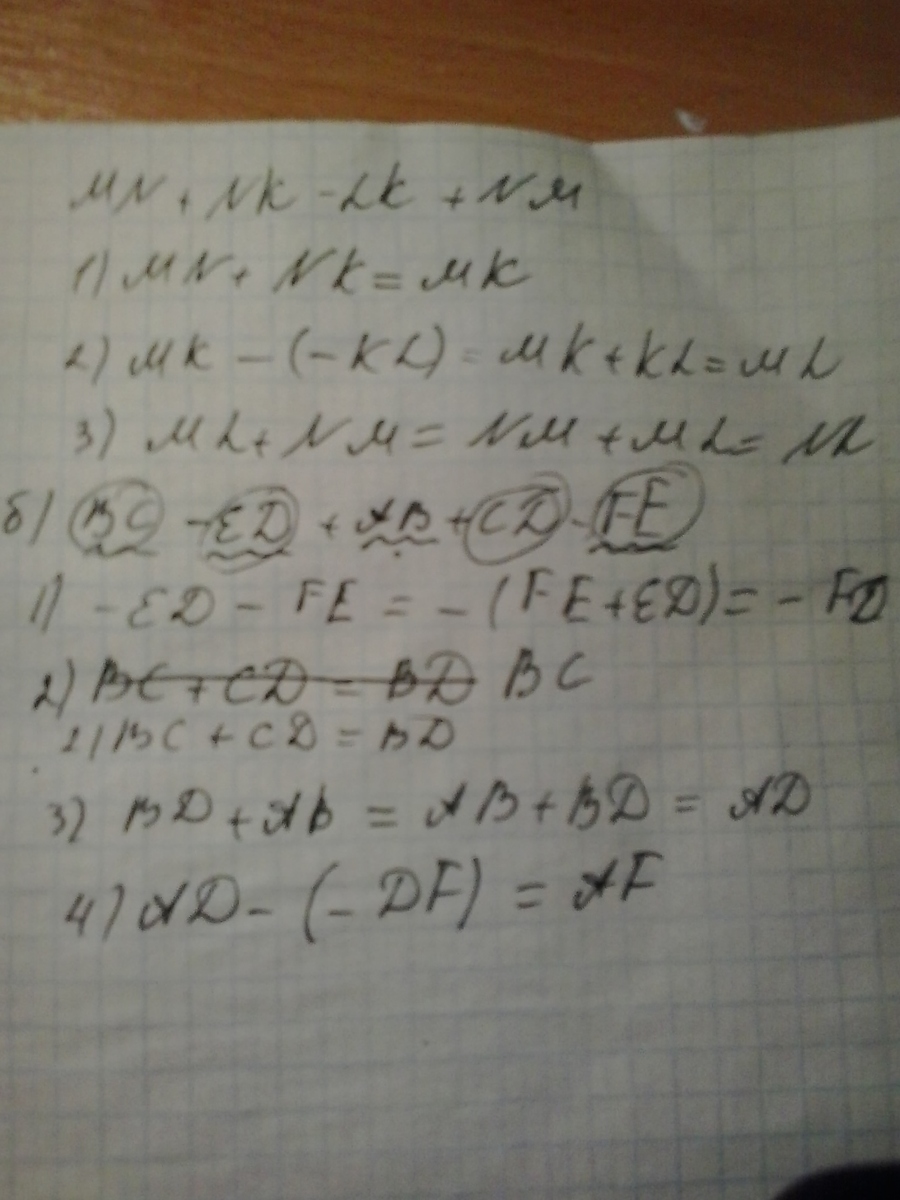 MN + NK - LK + NM
1) MN + NK = MK
2) MK - (-KL) = MK + KL = ML
3) ML + NM = NM + ML = NL
б) BC - ED + AB + CD - FE
1) - ED - FE = - (FE + ED) = - FD
2) BC + CD = BD BC
2) BC + CD = BD
3) BD + AB = AB + BD = AD
4) AD - (- DF) = AF